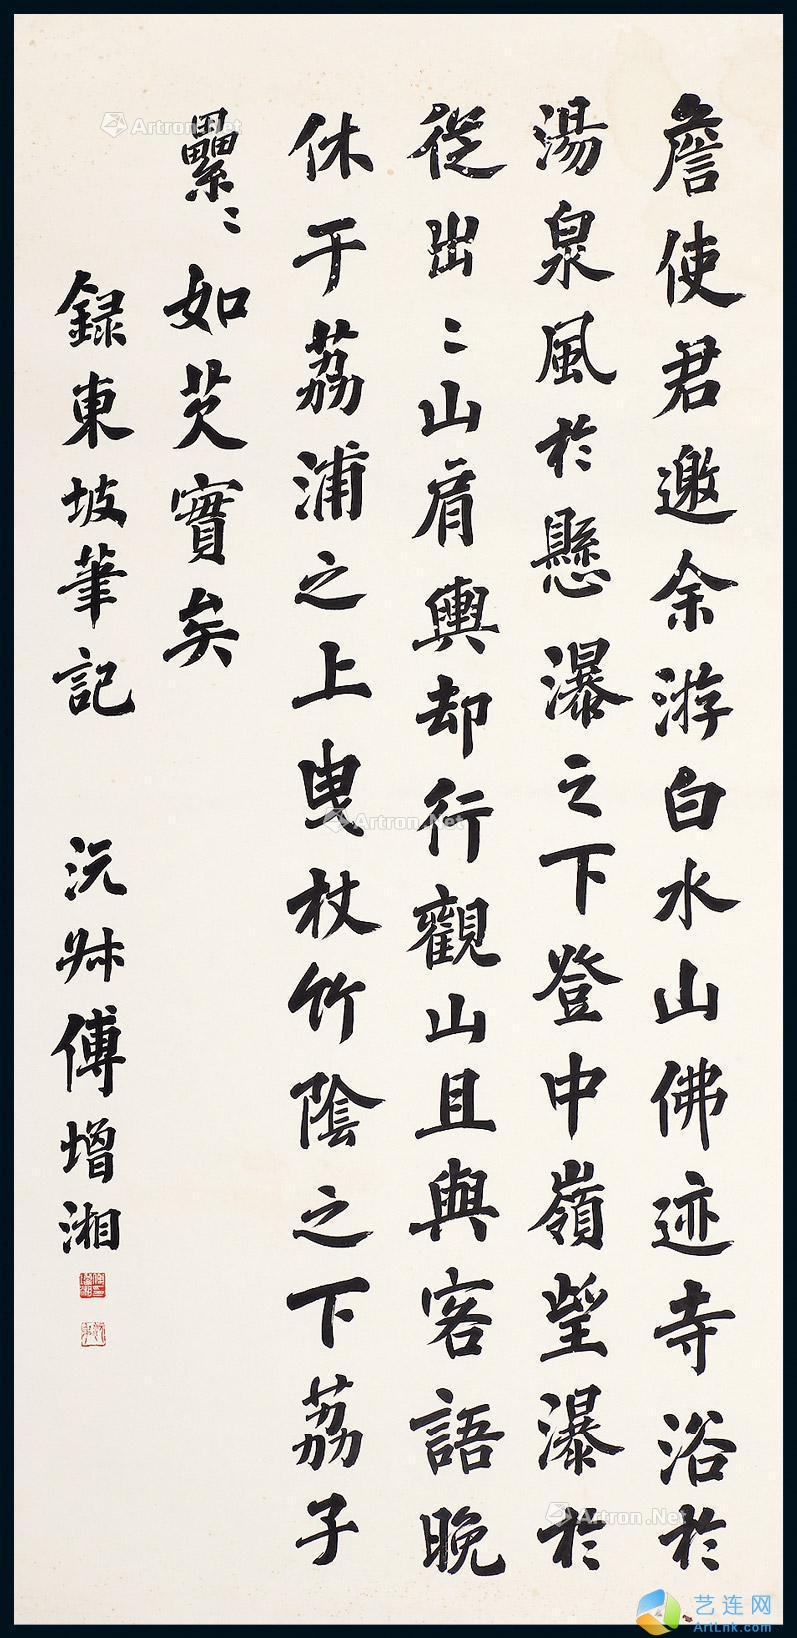 詹使君邀余游白水山佛迹寺浴於
湯泉風於懸瀑之下登中嶺望瀑於
從出〻山肩輿却行觀山且與客語晚
休于荔浦之上曳杖竹陰之下荔子
纍〻如芡實矣
録東坡筆記 沅叔傅增湘
Artron.Net
Artron.Net
Artron.Net
艺连网
ArtLnk.com